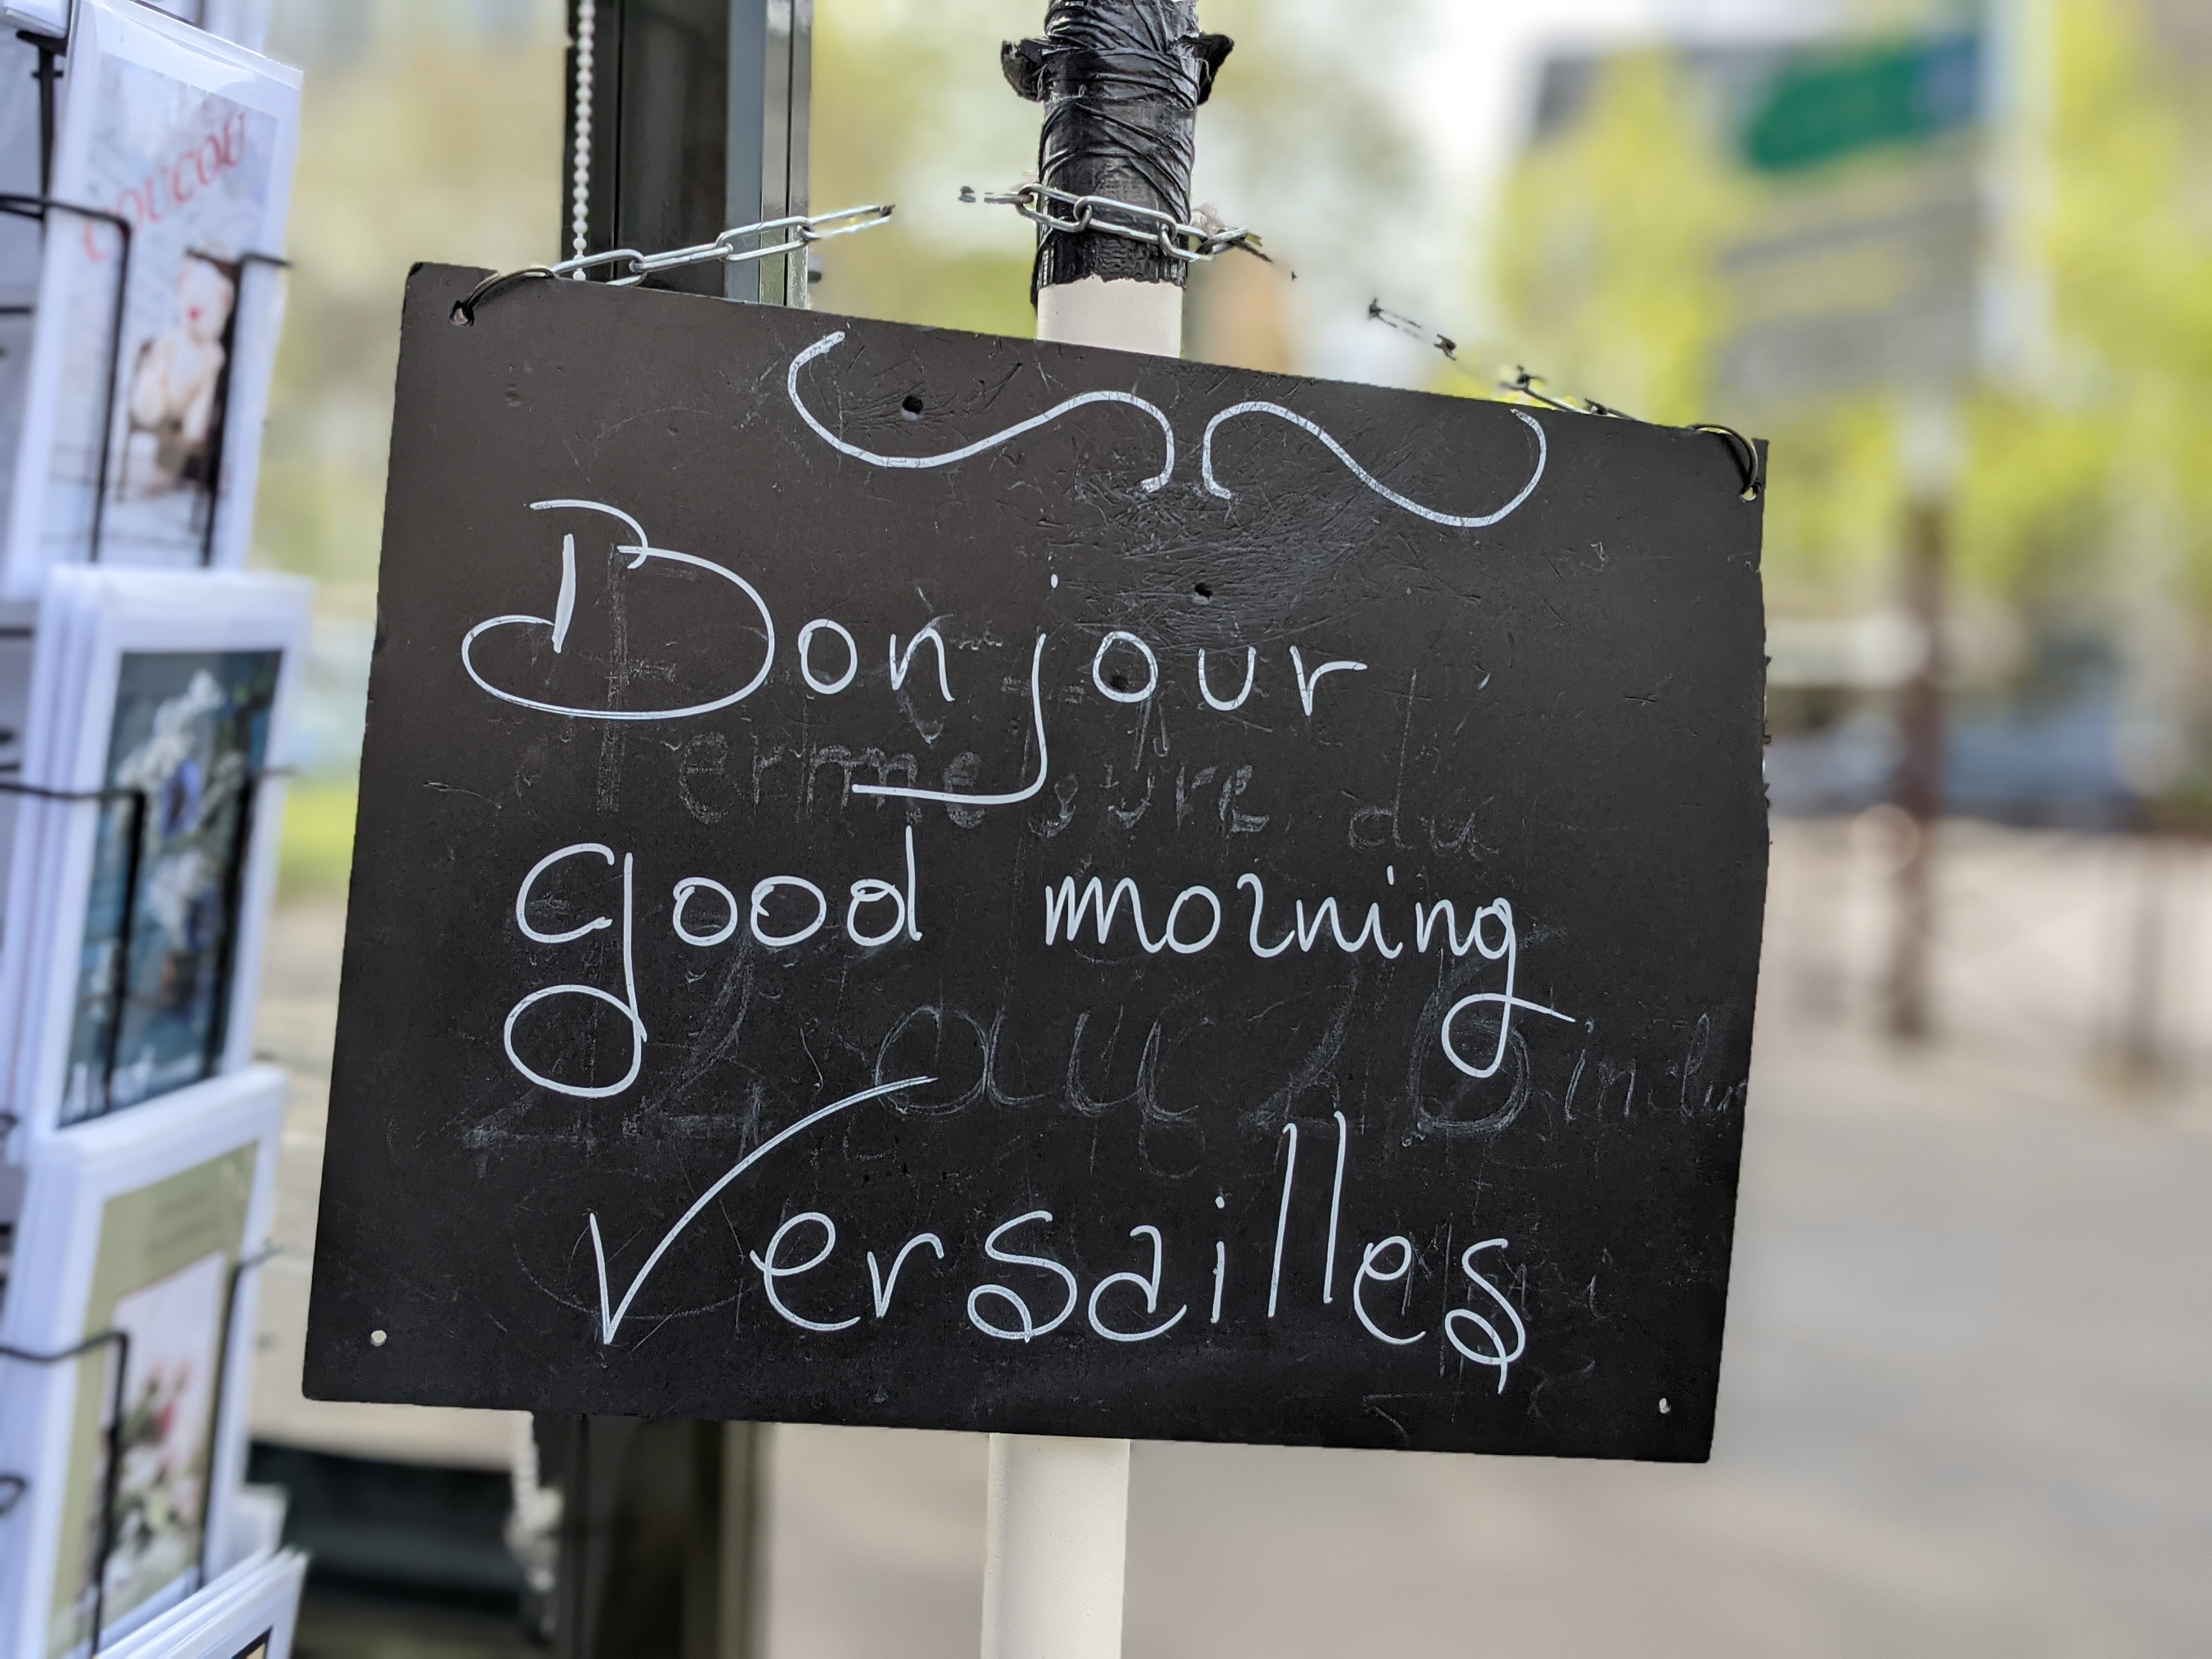 COUCOU
Bonjour
Fermeture du
good morning
22 au 25 inclus
Versailles